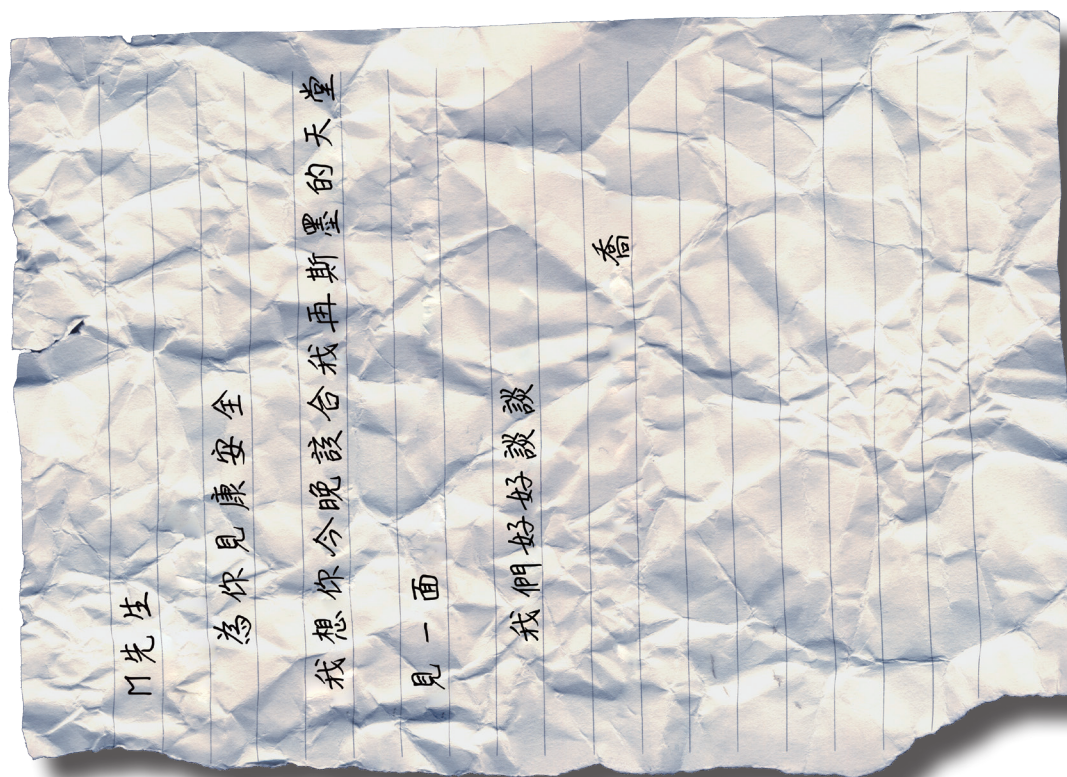 M先生
為你見康安全
我想你今晚該合我再斯墨的天堂
見一面
我們好好談談
喬